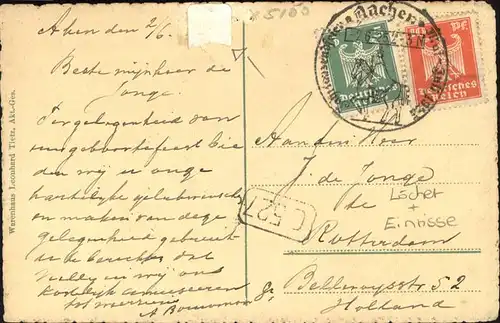 Aken den 2/6.
Beste mijnheer de
Jonge.
Ter gelegenheid van
uw geboortefeest bie
den wij u onze
hartelijke gelukwensch
en maken van deze
gelegenheid gebruik
te berichten dat
Nelly en wij ons
kostelijk amuseeren
A Bouwman
Warenhaus Leonhard Tietz, Akt.-Ges.
5100
Aachen
Pf.
Deutsches
Reich
Aan den Heer
J. de Jonge
te
Rotterdam
Löcher
+
Einrisse
C 527
Bellevoysstr 52
Holland